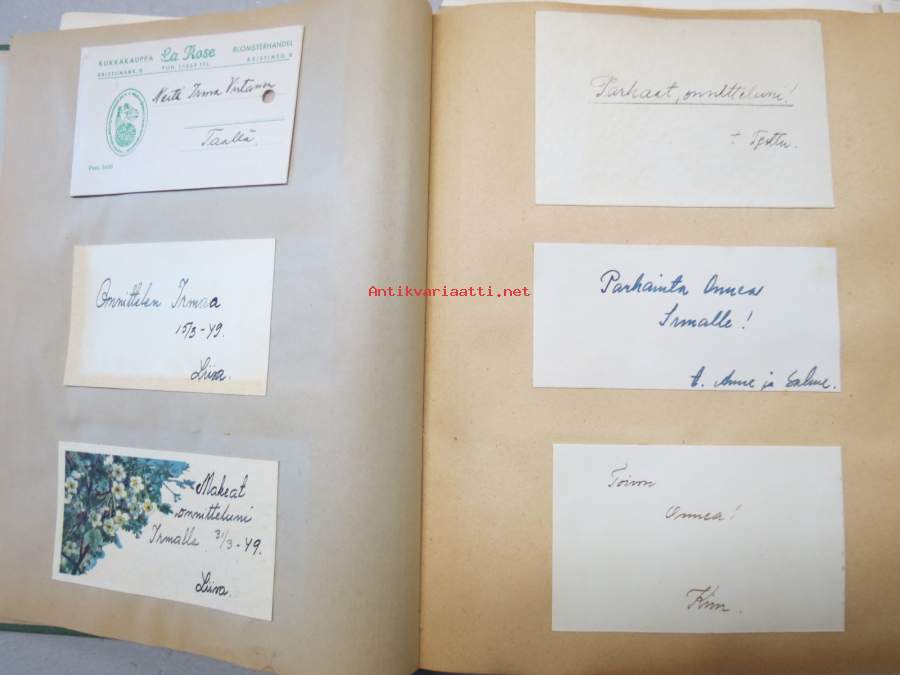 KUKKAKAUPPA La Rose BLOMSTERHANDEL
KRISTIINANK. 8 KRISTINEG. 8
Neiti Irma Virtanen
Täällä.
Onnittelen Irmaa
15/3-49.
Liisa.
Makeat
onnitteluni
Irmalle 31/3-49.
Liisa.
Parhaat onnitteluni!
Parhainta Onnea
Irmalle!
t. Anne ja Salme.
Toivon
Onnea!
Kim.
Antikvariaatti.net